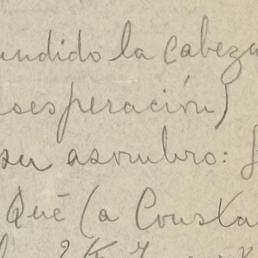 undido la cabeza
desesperación)
su asombro:
Qué (a Consta